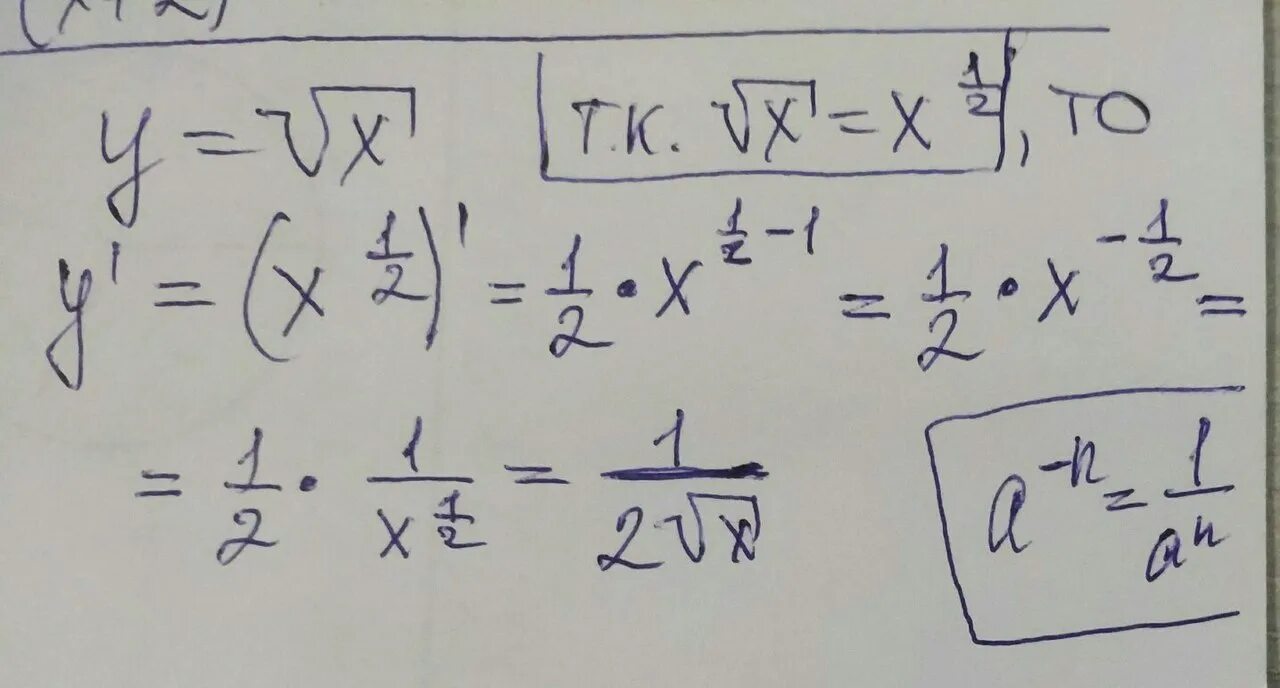 y = √x   т.к. √x = x^(1/2), то
y' = (x^(1/2))' = 1/2 · x^(1/2 − 1) = 1/2 · x^(−1/2) =
= 1/2 · 1/x^(1/2) = 1/(2√x)   a^(−n) = 1/a^n